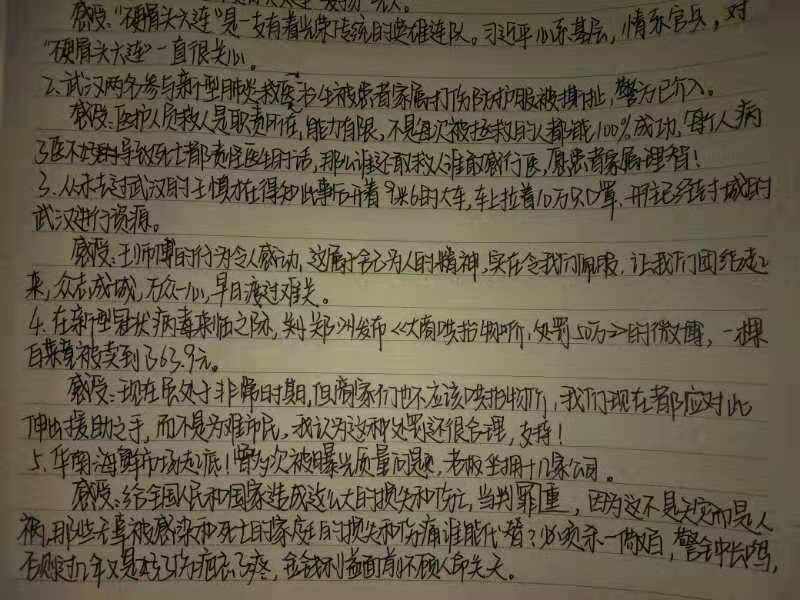 感受:"硬骨头六连"是一支有着光荣传统的英雄连队。习近平心系基层,情系官兵,对
"硬骨头六连"一直很关心。
2、武汉两名参与新型肺炎救医生被患者家属打伤防护服被撕扯,警方已介入。
感受:医护人员救人是职责所在,能力有限,不是每次被拯救的人都能100%成功,每个人病
了医不好导致死亡都责怪医生的话,那么谁还敢救人谁敢感行医,愿患者家属理智!
3、从未去过武汉的王慎才在得知此事后开着9米6的大车,车上拉着10万只口罩,开往已经封城的
武汉进行资源。
感受:王师傅的行为令人感动,这属于舍己为人的精神,实在令我们佩服,让我们团结起
来,众志成城,万众一心,早日渡过难关。
4、在新型冠状病毒来临之际,郑州发布《大商哄抬物价,处罚50万》的微博,一棵
白菜竟被卖到了63.9元。
感受:现在虽处于非常时期,但商家们也不应该哄抬物价,我们现在都应对此
伸出援助之手,而不是为难市民,我认为这种处罚还很合理,支持!
5、华南海鲜市场起底!曾为次被曝光质量问题,老板坐拥十几家公司。
感受:给全国人民和国家造成这么大的损失和伤亡,当判罪重,因为这不是天灾而是人
祸,那些无辜被感染和死亡的家庭的损失和伤痛谁能代替?必须杀一儆百,警钟长鸣,
否则过几年又是好了伤疤忘了疼,金钱利益面前不顾人命关天。